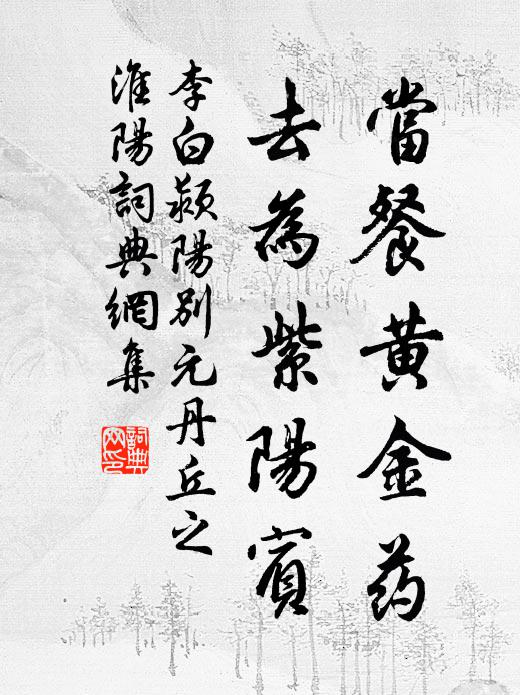 當餐黃金药
去為紫陽賓
李白潁陽別元丹丘之
淮陽詞典網集
詞典
网印